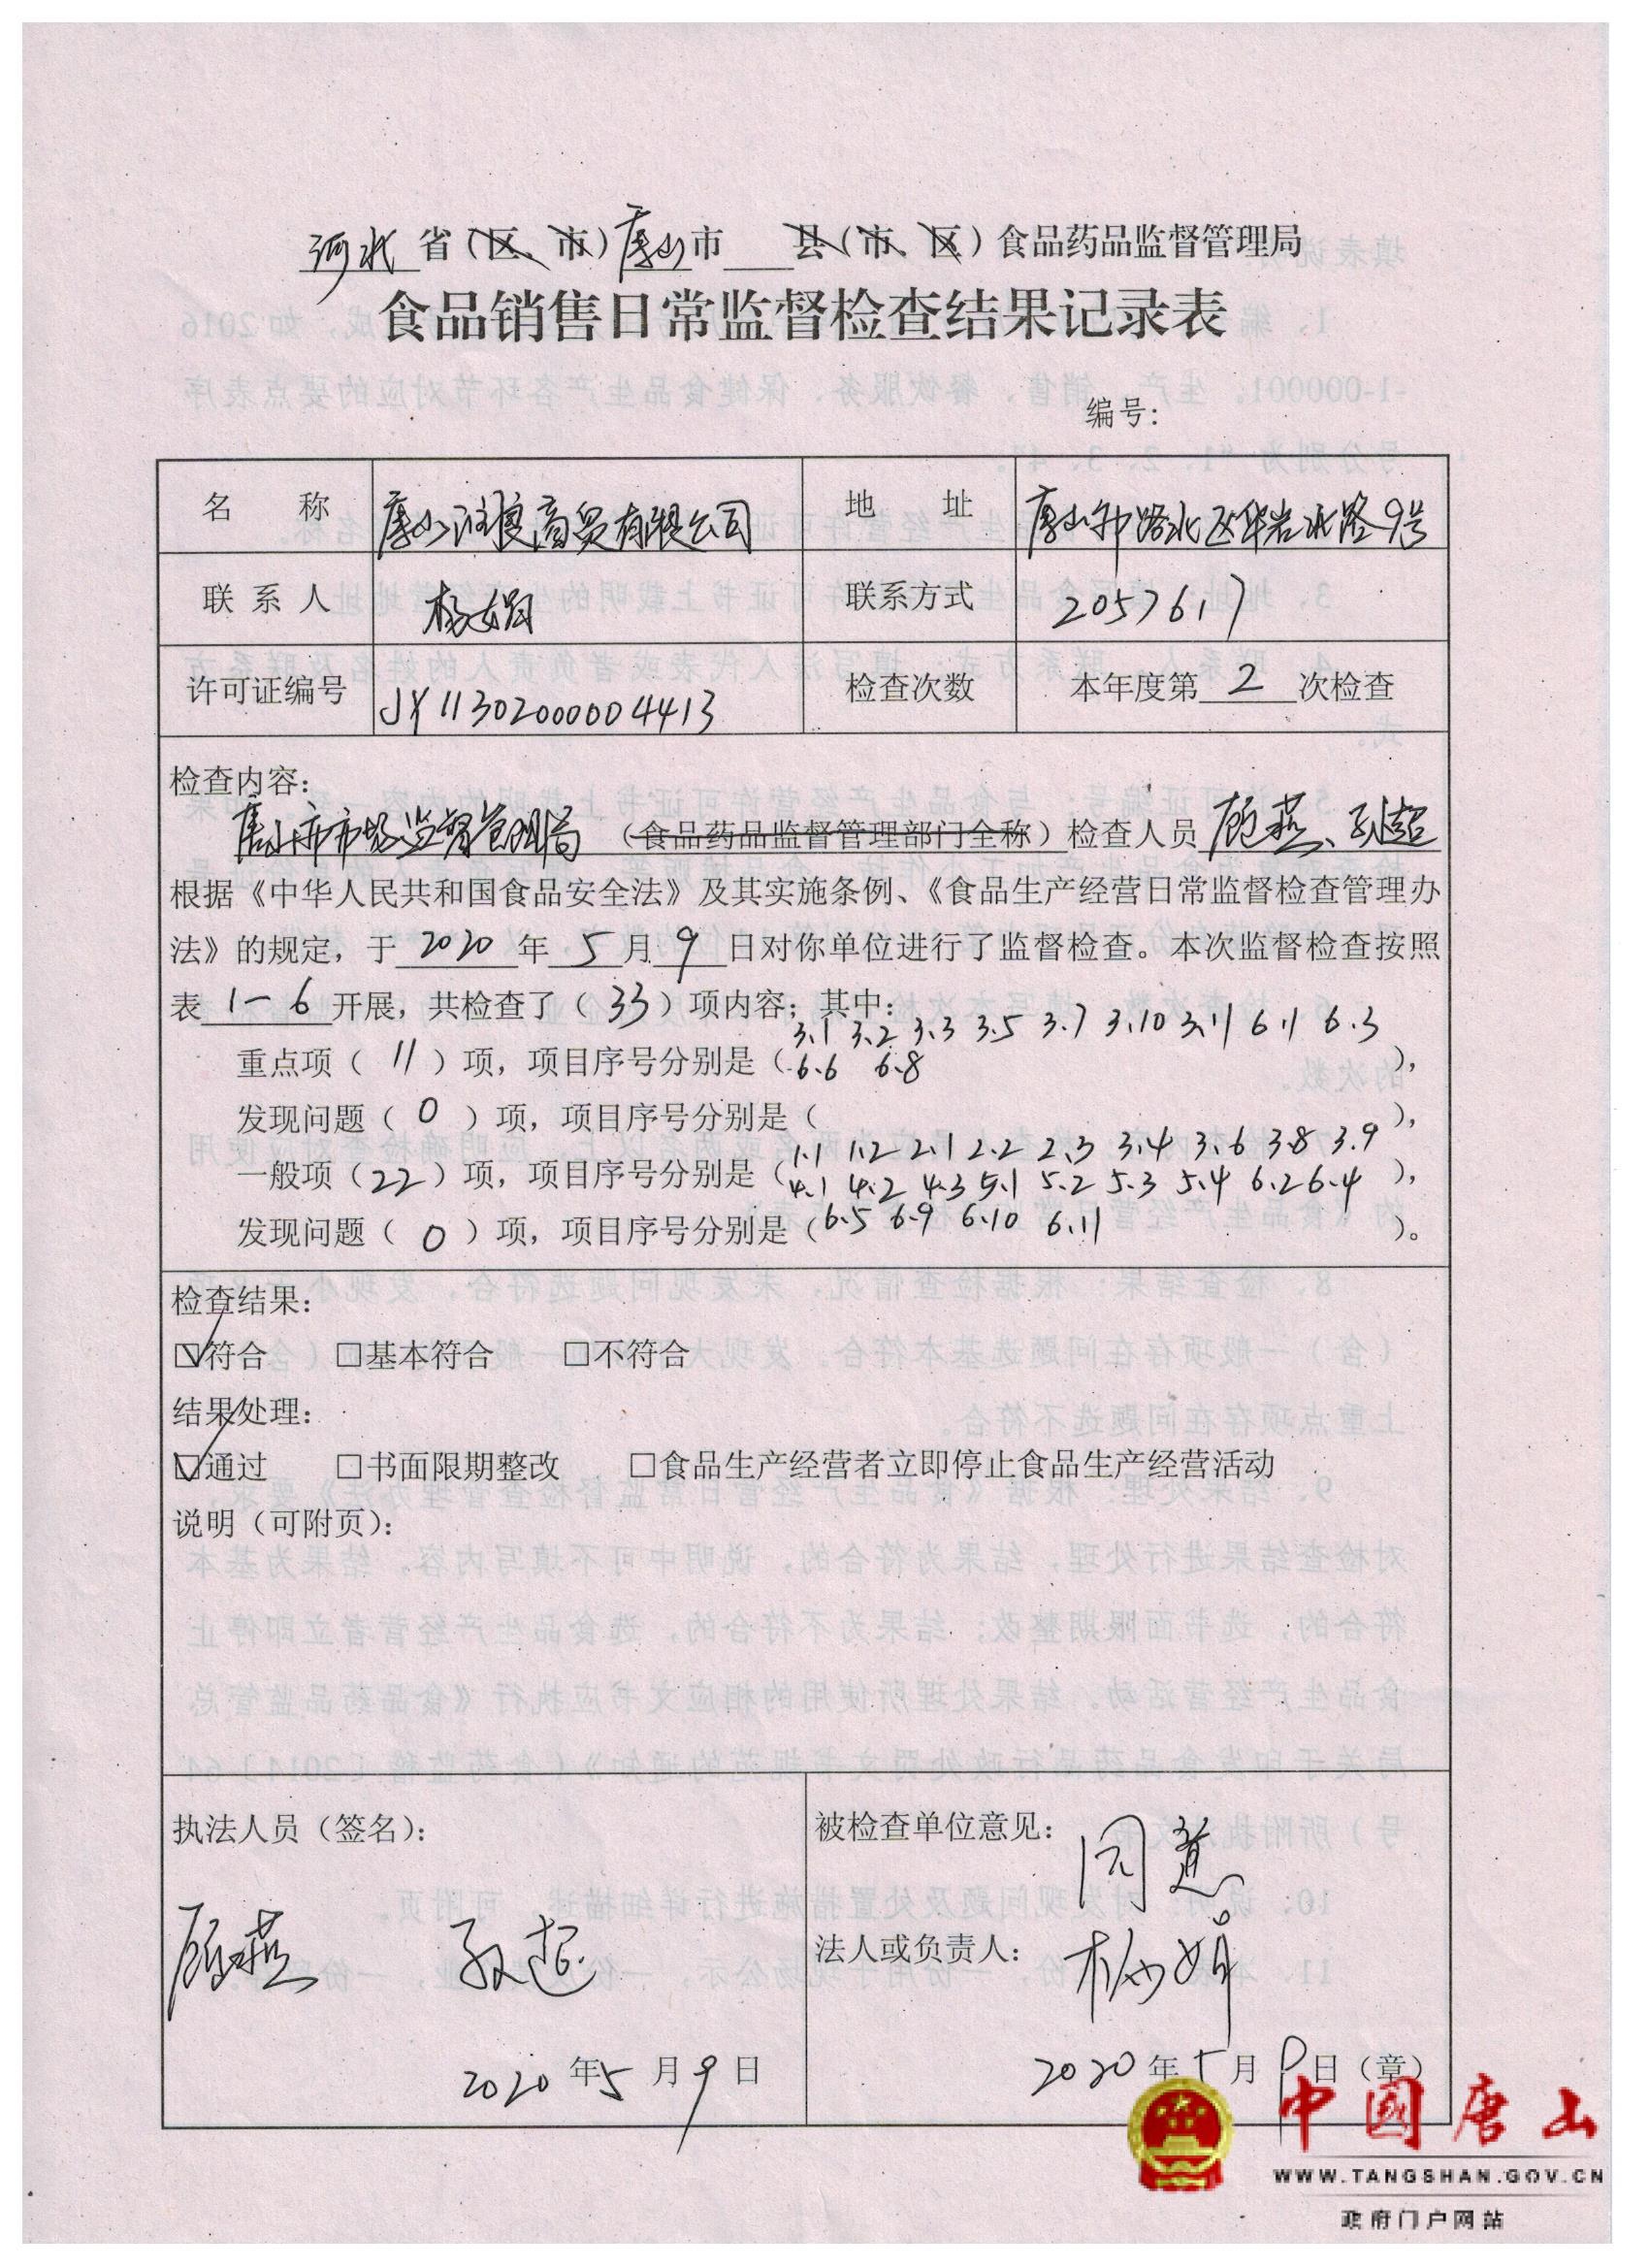 河北省（区、市）唐山市 县（市、区）食品药品监督管理局
食品销售日常监督检查结果记录表
编号：
名 称 唐山润良商贸有限公司 地 址 唐山市路北区华岩北路9号
联系人 杨娟 联系方式 2057617
许可证编号 JY11302000004413 检查次数 本年度第 2 次检查
检查内容：
唐山市市场监督管理局（食品药品监督管理部门全称）检查人员 顾燕、孙超
根据《中华人民共和国食品安全法》及其实施条例、《食品生产经营日常监督检查管理办
法》的规定，于 2020 年 5 月 9 日对你单位进行了监督检查。本次监督检查按照
表 1－6 开展，共检查了（33）项内容；其中：
3.1 3.2 3.3 3.5 3.7 3.10 3.11 6.1 6.3
重点项（11）项，项目序号分别是（6.6 6.8 ），
发现问题（0）项，项目序号分别是（ ），
1.1 1.2 2.1 2.2 2.3 3.4 3.6 3.8 3.9
一般项（22）项，项目序号分别是（4.1 4.2 4.3 5.1 5.2 5.3 5.4 6.2 6.4 ），
发现问题（0）项，项目序号分别是（6.5 6.9 6.10 6.11 ）。
检查结果：
☑符合 □基本符合 □不符合
结果处理：
☑通过 □书面限期整改 □食品生产经营者立即停止食品生产经营活动
说明（可附页）：
执法人员（签名）：
顾燕 孙超
2020 年 5 月 9 日
被检查单位意见：同意
法人或负责人：杨娟
2020 年 5 月 9 日（章）
中国唐山
WWW.TANGSHAN.GOV.CN
政府门户网站